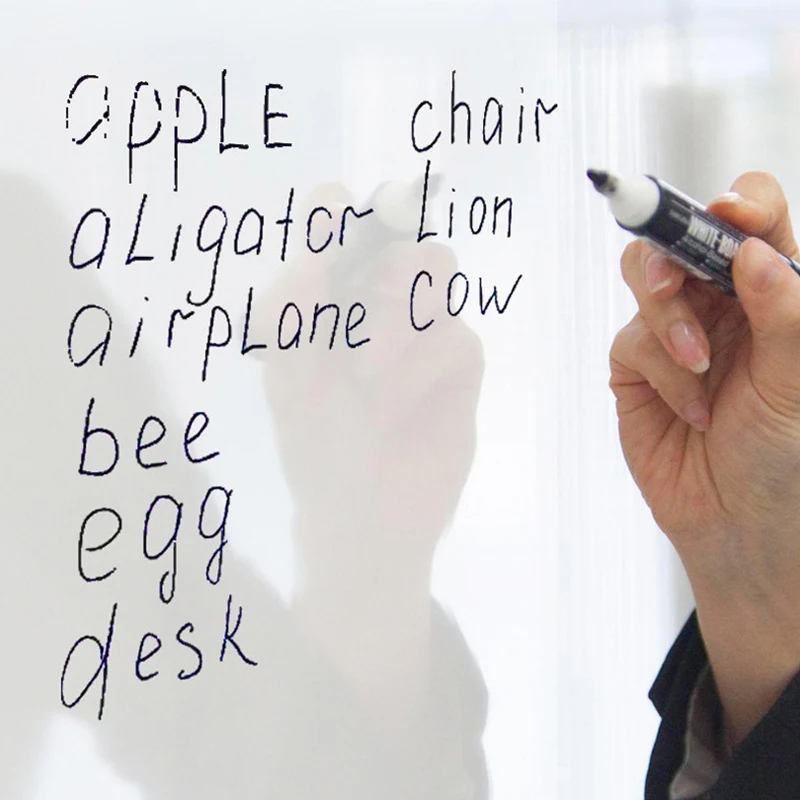 apple
aligator
airplane
bee
egg
desk
chair
Lion
cow
WHITE-BOA